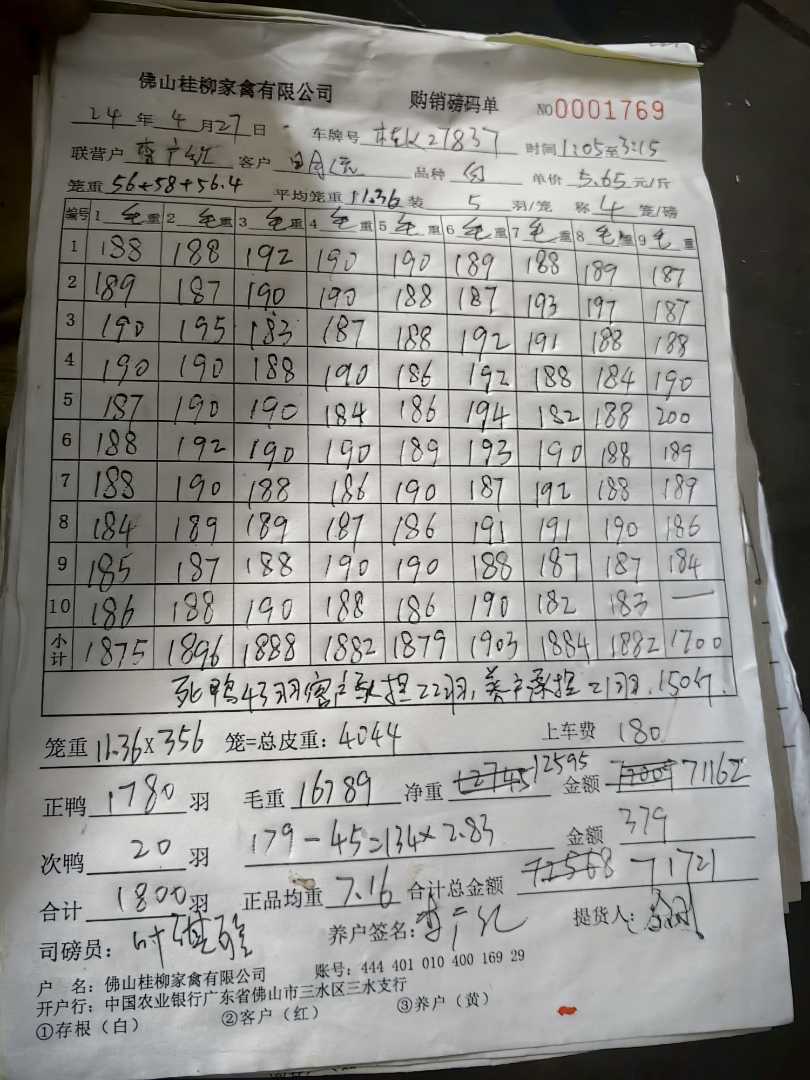 佛山桂柳家禽有限公司 购销磅码单 NO0001769
24年4月27日 车牌号 桂K27837 时间1:05至3:15
联营户 客户 品种 白 单价 5.65 元/斤
笼重 56+58+56.4 平均笼重 11.36 装 5 羽/笼 称 4 笼/磅
编号 1 毛重 2 毛重 3 毛重 4 毛重 5 毛重 6 毛重 7 毛重 8 毛重 9 毛重
1 188 188 192 190 190 189 188 189 187
2 189 187 190 190 188 187 193 197 187
3 190 195 183 187 188 192 191 188 188
4 190 190 188 190 186 192 188 184 190
5 187 190 190 184 186 194 182 188 200
6 188 192 190 190 189 193 190 188 189
7 188 190 188 186 190 187 192 188 189
8 184 189 189 187 186 191 191 190 186
9 185 187 188 190 190 188 187 187 184
10 186 188 190 188 186 190 182 183 —
小计 1875 1896 1888 1882 1879 1903 1884 1882 1700
死鸭43羽客户承担22羽,养户承担21羽,150斤.
笼重 11.36×356 笼=总皮重: 4044 上车费 180
正鸭 1780 羽 毛重 16789 净重 12745 12595 金额 71162
次鸭 20 羽 179-45=134×2.83 金额 379
合计 1800 羽 正品均重 7.16 合计总金额 72568 71721
司磅员: 养户签名: 提货人:
户 名: 佛山桂柳家禽有限公司 账号: 444 401 010 400 169 29
开户行: 中国农业银行广东省佛山市三水区三水支行
①存根(白) ②客户(红) ③养户(黄)